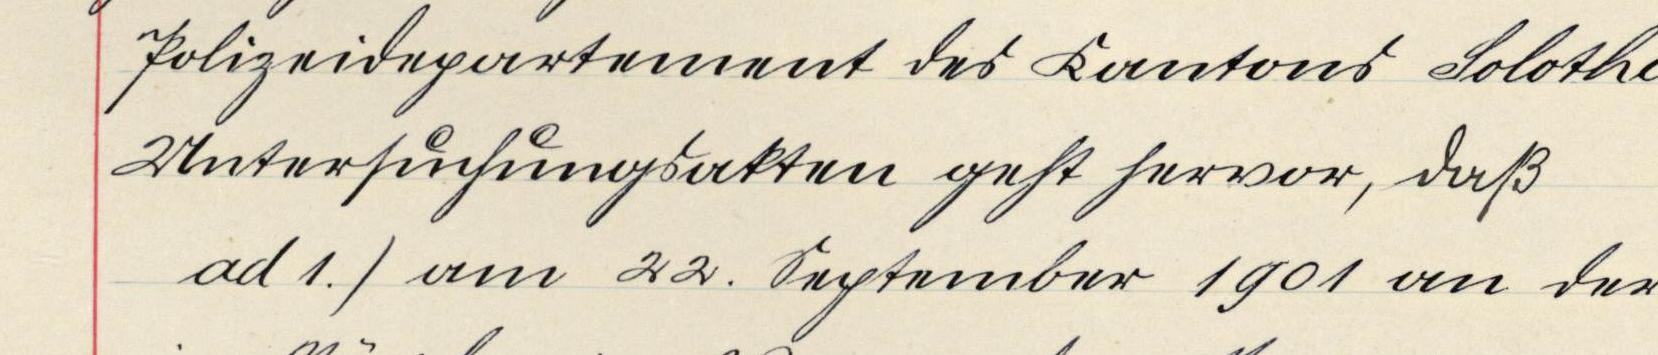 Polizeidepartement des Kantons Soloth
Untersuchungsakten geht hervor, daß
ad 1.) am 22. September 1901 an der